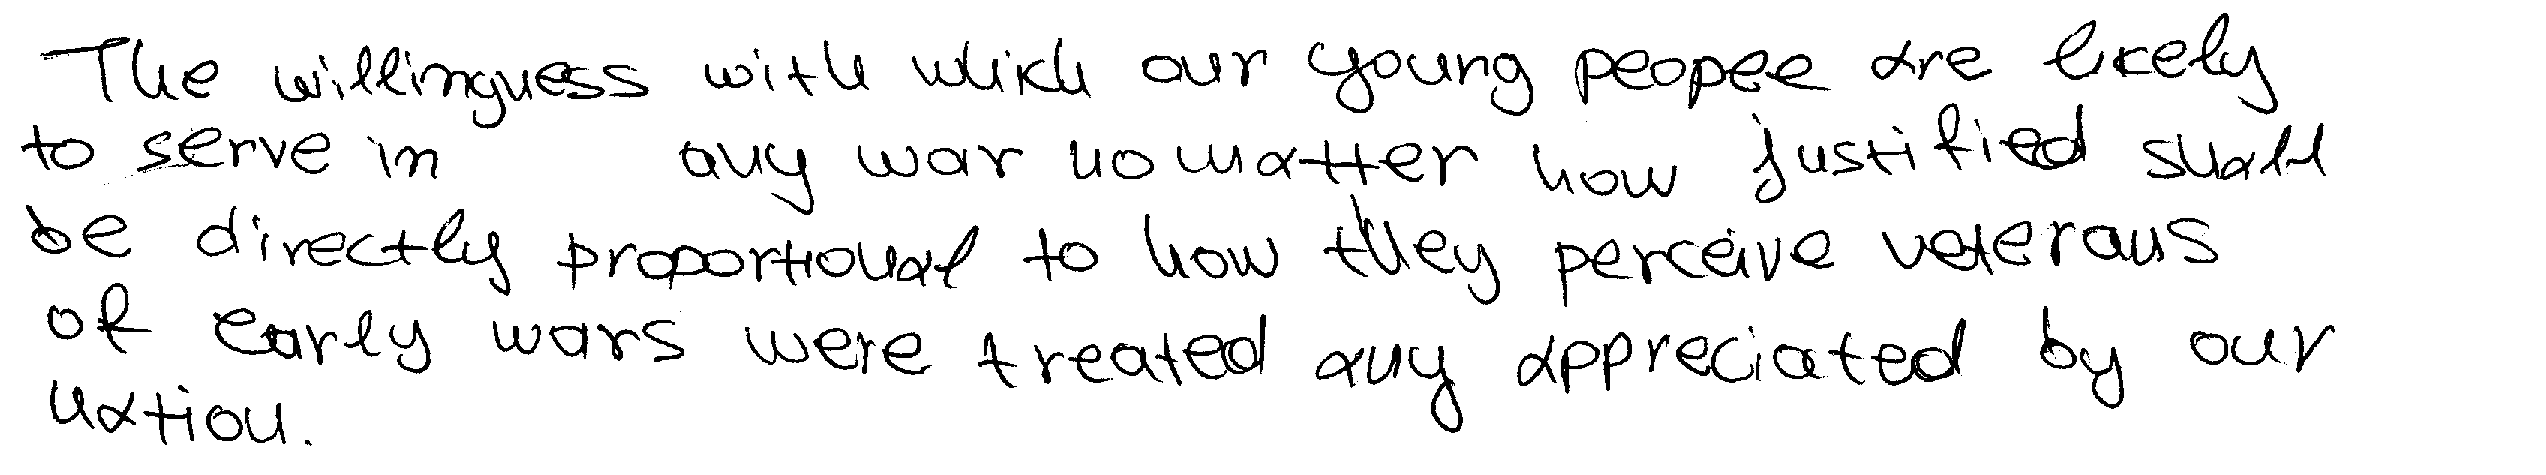 The willingness with which our young people are likely
to serve in any war no matter how justified shall
be directly proportional to how they perceive veterans
of early wars were treated any appreciated by our
nation.